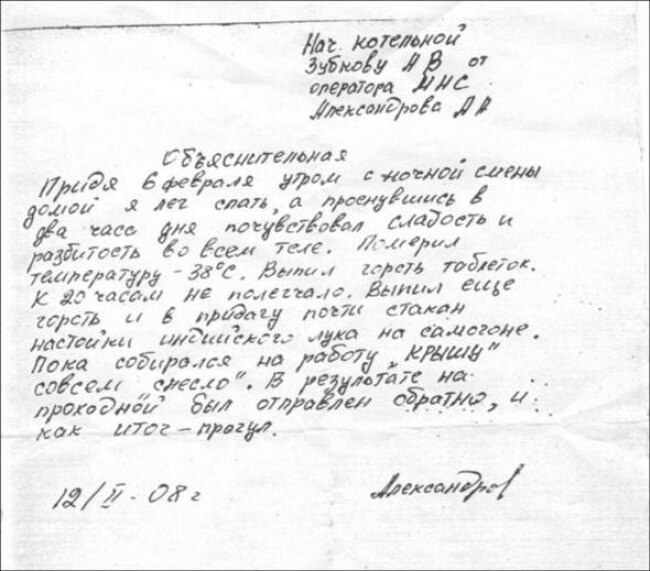 Нач. котельной
Зубкову А В от
оператора МНС
Александрова А А
Объяснительная
Придя 6 февраля утром с ночной смены
домой я лег спать, а проснувшись в
два часа дня почувствовал слабость и
разбитость во всем теле. Померил
температуру - 38°С. Выпил горсть таблеток.
К 20 часам не полегчало. Выпил еще
горсть и в придачу почти стакан
настойки индийского лука на самогоне.
Пока собирался на работу „крышу"
совсем снесло". В результате на
проходной был отправлен обратно, и
как итог – прогул.
12/II - 08 г
Александров